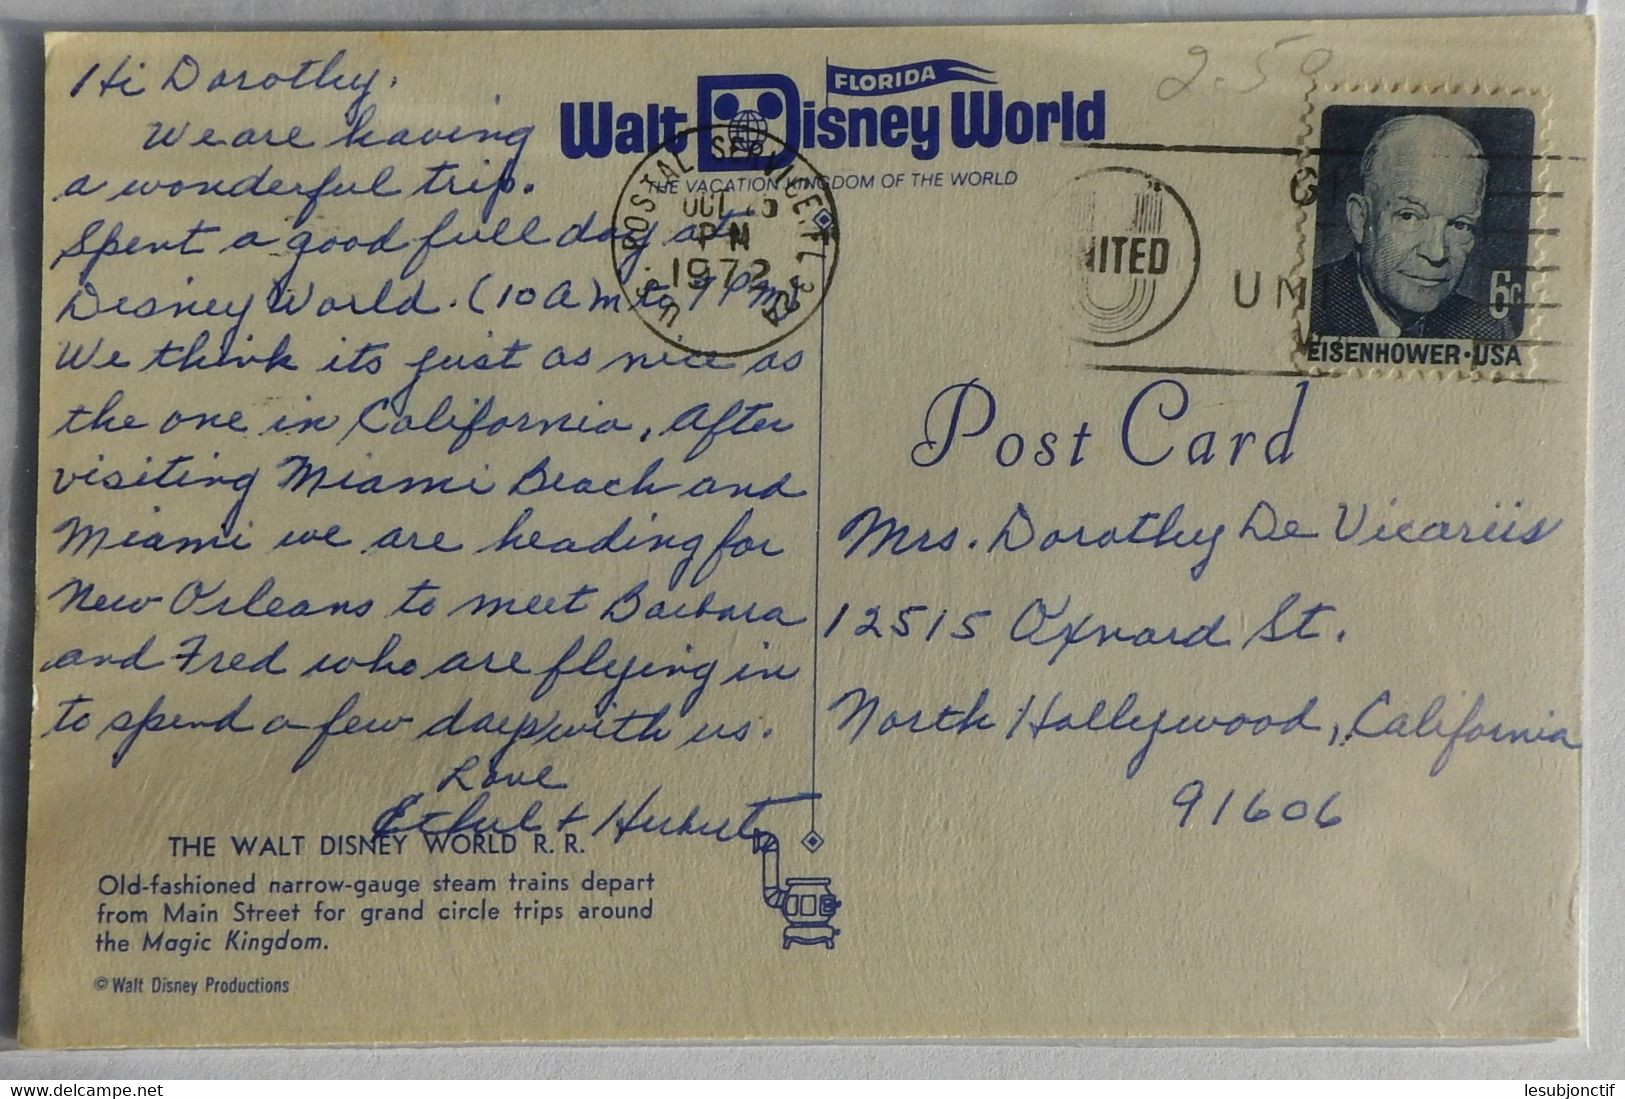 Hi Dorothy.
We are having
a wonderful trip.
Spent a good full day at
Disney World. (10 A)m to 9 Pm)
We think its just as nice as
the one in California. After
visiting Miami Beach and
Miami we are heading for
New Orleans to meet Barbara
and Fred who are flying in
to spend a few days with us.
Love
Ethel + Hubert
THE WALT DISNEY WORLD R. R.
Old-fashioned narrow-gauge steam trains depart
from Main Street for grand circle trips around
the Magic Kingdom.
© Walt Disney Productions
FLORIDA
Walt Disney World
THE VACATION KINGDOM OF THE WORLD
U.S. POSTAL SERVICE, FL
PM
1972
2.50
UNITED
6c
EISENHOWER·USA
Post Card
Mrs. Dorothy De Vicariis
12515 Oxnard St.
North Hollywood, California
91606
lesubjonctif
www.delcampe.net